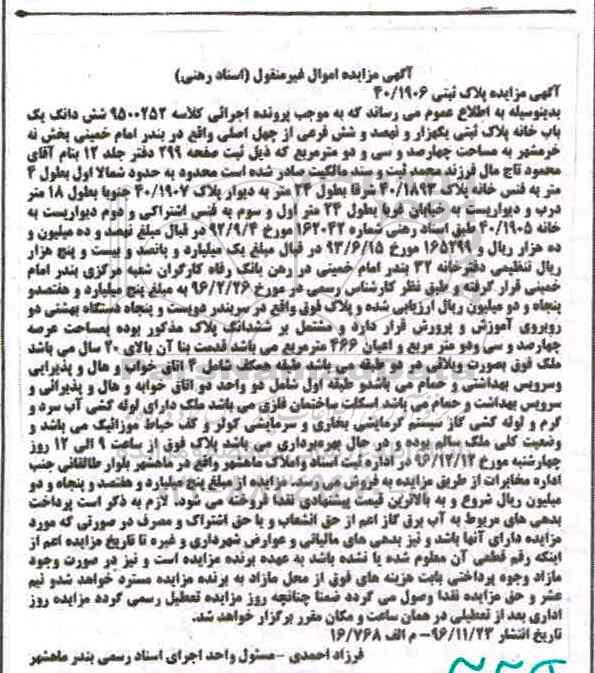 آگهی مزایده اموال غیرمنقول (اسناد رهنی)
آگهی مزایده پلاک ثبتی ۴۰/۱۹۰۶
بدینوسیله به اطلاع عموم می رساند که به موجب پرونده اجرائی کلاسه ۹۵۰۰۲۵۲ شش دانک یک
باب خانه پلاک ثبتی یکهزار و نهصد و شش فرعی از چهل اصلی واقع در بندر امام خمینی بخش نه
خرمشهر به مساحت چهارصد و سی و دو مترمربع که ذیل ثبت صفحه ۲۹۹ دفتر جلد ۱۲ بنام آقای
محمود تاج مال فرزند محمد ثبت و سند مالکیت صادر شده است محدود به حدود شمالا اول بطول ۴
متر به فنس خانه پلاک ۴۰/۱۸۹۳ شرقا بطول ۲۴ متر به دیوار پلاک ۴۰/۱۹۰۷ جنوبا بطول ۱۸ متر
درب و دیواریست به خیابان غربا بطول ۲۴ متر اول و سوم به فنس اشتراکی و دوم دیواریست به
خانه ۴۰/۱۹۰۵ طبق اسناد رهنی شماره ۱۶۲۰۴۲ مورخ ۹۲/۹/۴ در قبال مبلغ نهصد و ده میلیون و
ده هزار ریال و ۱۶۵۲۹۹ مورخ ۹۳/۶/۱۵ در قبال مبلغ یک میلیارد و پانصد و بیست و پنج هزار
ریال تنظیمی دفترخانه ۳۲ بندر امام خمینی در رهن بانک رفاه کارگران شعبه مرکزی بندر امام
خمینی قرار گرفته و طبق نظر کارشناس رسمی در مورخ ۹۶/۲/۲۶ به مبلغ پنج میلیارد و هفتصدو
پنجاه و دو میلیون ریال ارزیابی شده و پلاک فوق واقع در سربندر دویست و پنجاه دستگاه بهشتی دو
روبروی آموزش و پرورش قرار دارد و مشتمل بر ششدانگ پلاک مذکور بوده بمساحت عرصه
چهارصد و سی ودو متر مربع و اعیان ۴۶۶ مترمربع می باشد قدمت بنا آن بالای ۲۰ سال می باشد
ملک فوق بصورت ویلائی در دو طبقه می باشد طبقه همکف شامل ۴ اتاق خواب و هال و پذیرایی
وسرویس بهداشتی و حمام می باشدو طبقه اول شامل دو واحد دو اتاق خوابه و هال و پذیرائی و
سرویس بهداشت وحمام می باشد اسکلت ساختمان فلزی می باشد ملک دارای لوله کشی آب سرد و
گرم و لوله کشی گاز سیستم گرمایشی بخاری و سرمایشی کولر و کف حیاط موزائیک می باشد و
وضعیت کلی ملک سالم بوده و در حال بهره‌برداری می باشد پلاک فوق از ساعت ۹ الی ۱۲ روز
چهارشنبه مورخ ۹۶/۱۲/۱۲ در اداره ثبت اسناد واملاک ماهشهر واقع در ماهشهر بلوار طالقانی جنب
اداره مخابرات از طریق مزایده به فروش می رسد. مزایده از مبلغ پنج میلیارد و هفتصد و پنجاه و دو
میلیون ریال شروع و به بالاترین قیمت پیشنهادی نقدا فروخته می شود. لازم به ذکر است پرداخت
بدهی های مربوط به آب برق گاز اعم از حق انشعاب و یا حق اشتراک و مصرف در صورتی که مورد
مزایده دارای آنها باشد و نیز بدهی های مالیاتی و عوارض شهرداری و غیره تا تاریخ مزایده اعم از
اینکه رقم قطعی آن معلوم شده یا نشده باشد به عهده برنده مزایده است و نیز در صورت وجود
مازاد وجوه پرداختی بابت هزینه های فوق از محل مازاد به برنده مزایده مسترد خواهد شدو نیم
عشر و حق مزایده نقدا وصول می گردد ضمنا چنانچه روز مزایده تعطیل رسمی گردد مزایده روز
اداری بعد از تعطیلی در همان ساعت و مکان مقرر برگزار خواهد شد.
تاریخ انتشار ۹۶/۱۱/۲۳– م الف ۱۶/۷۶۸
فرزاد احمدی –مسئول واحد اجرای اسناد رسمی بندر ماهشهر